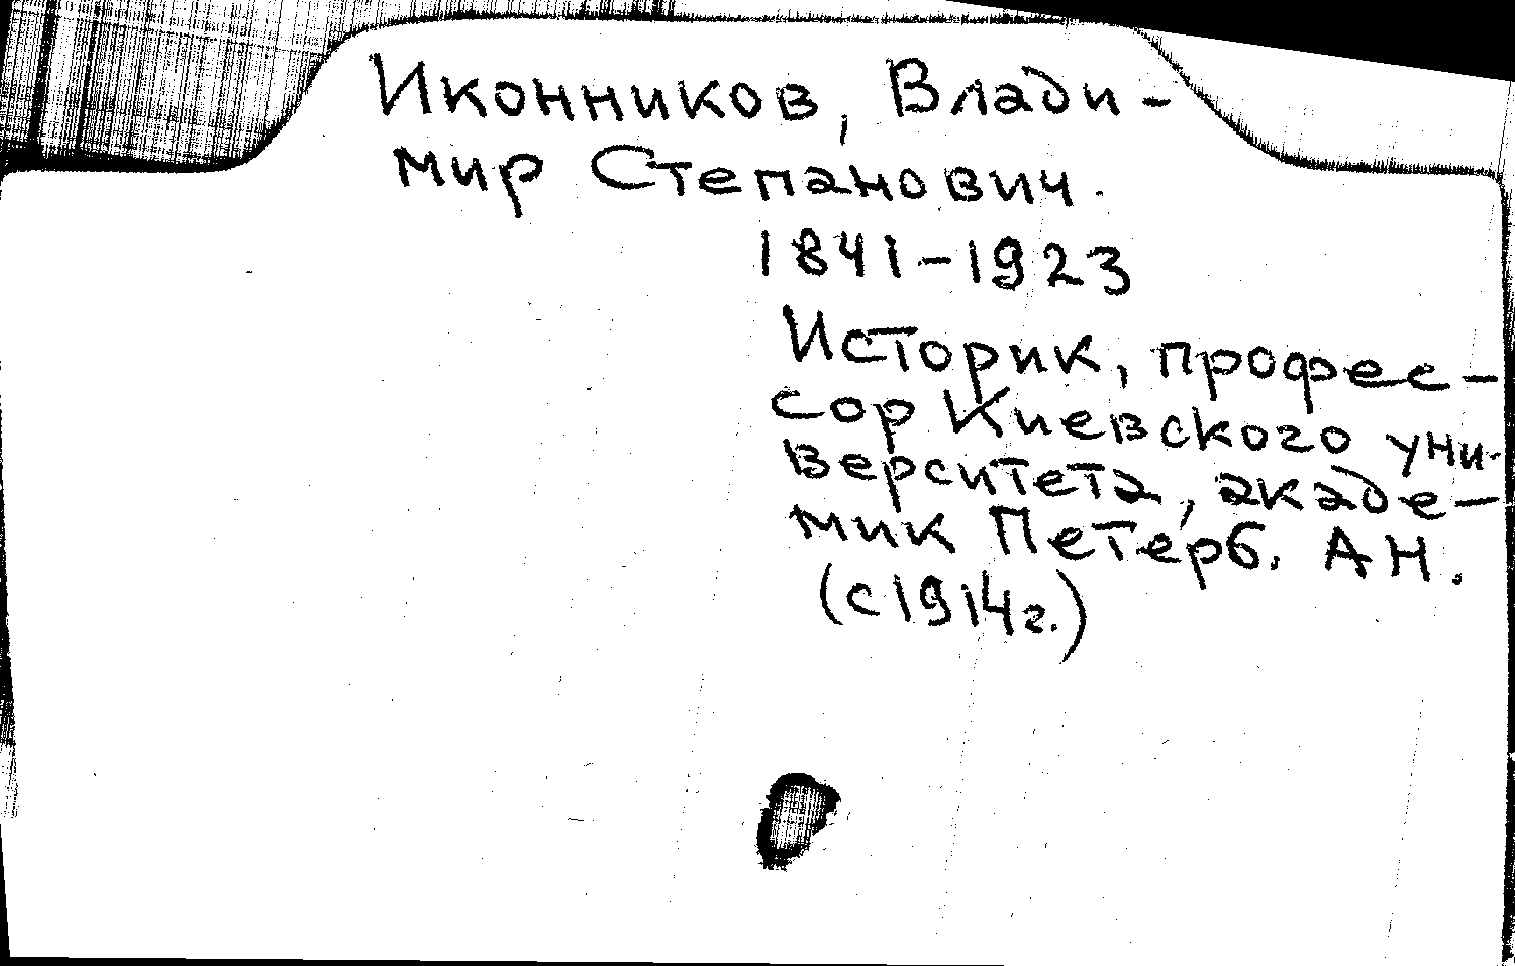 Иконников, Влади-
мир Степанович.
1841-1923
Историк, профес-
сор Киевского уни-
верситета, акаде-
мик Петерб. АН.
(с 1914г.)